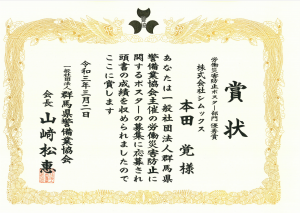 賞状
労働災害防止ポスター部門 優秀賞
株式会社シムックス
本田 覚 様
あなたは一般社団法人群馬県
警備業協会主催の労働災害防止に
関するポスターの募集に応募され
頭書の成績を収められましたので
ここに賞します
令和三年三月二日
一般社団法人 群馬県警備業協会
会長 山﨑松恵